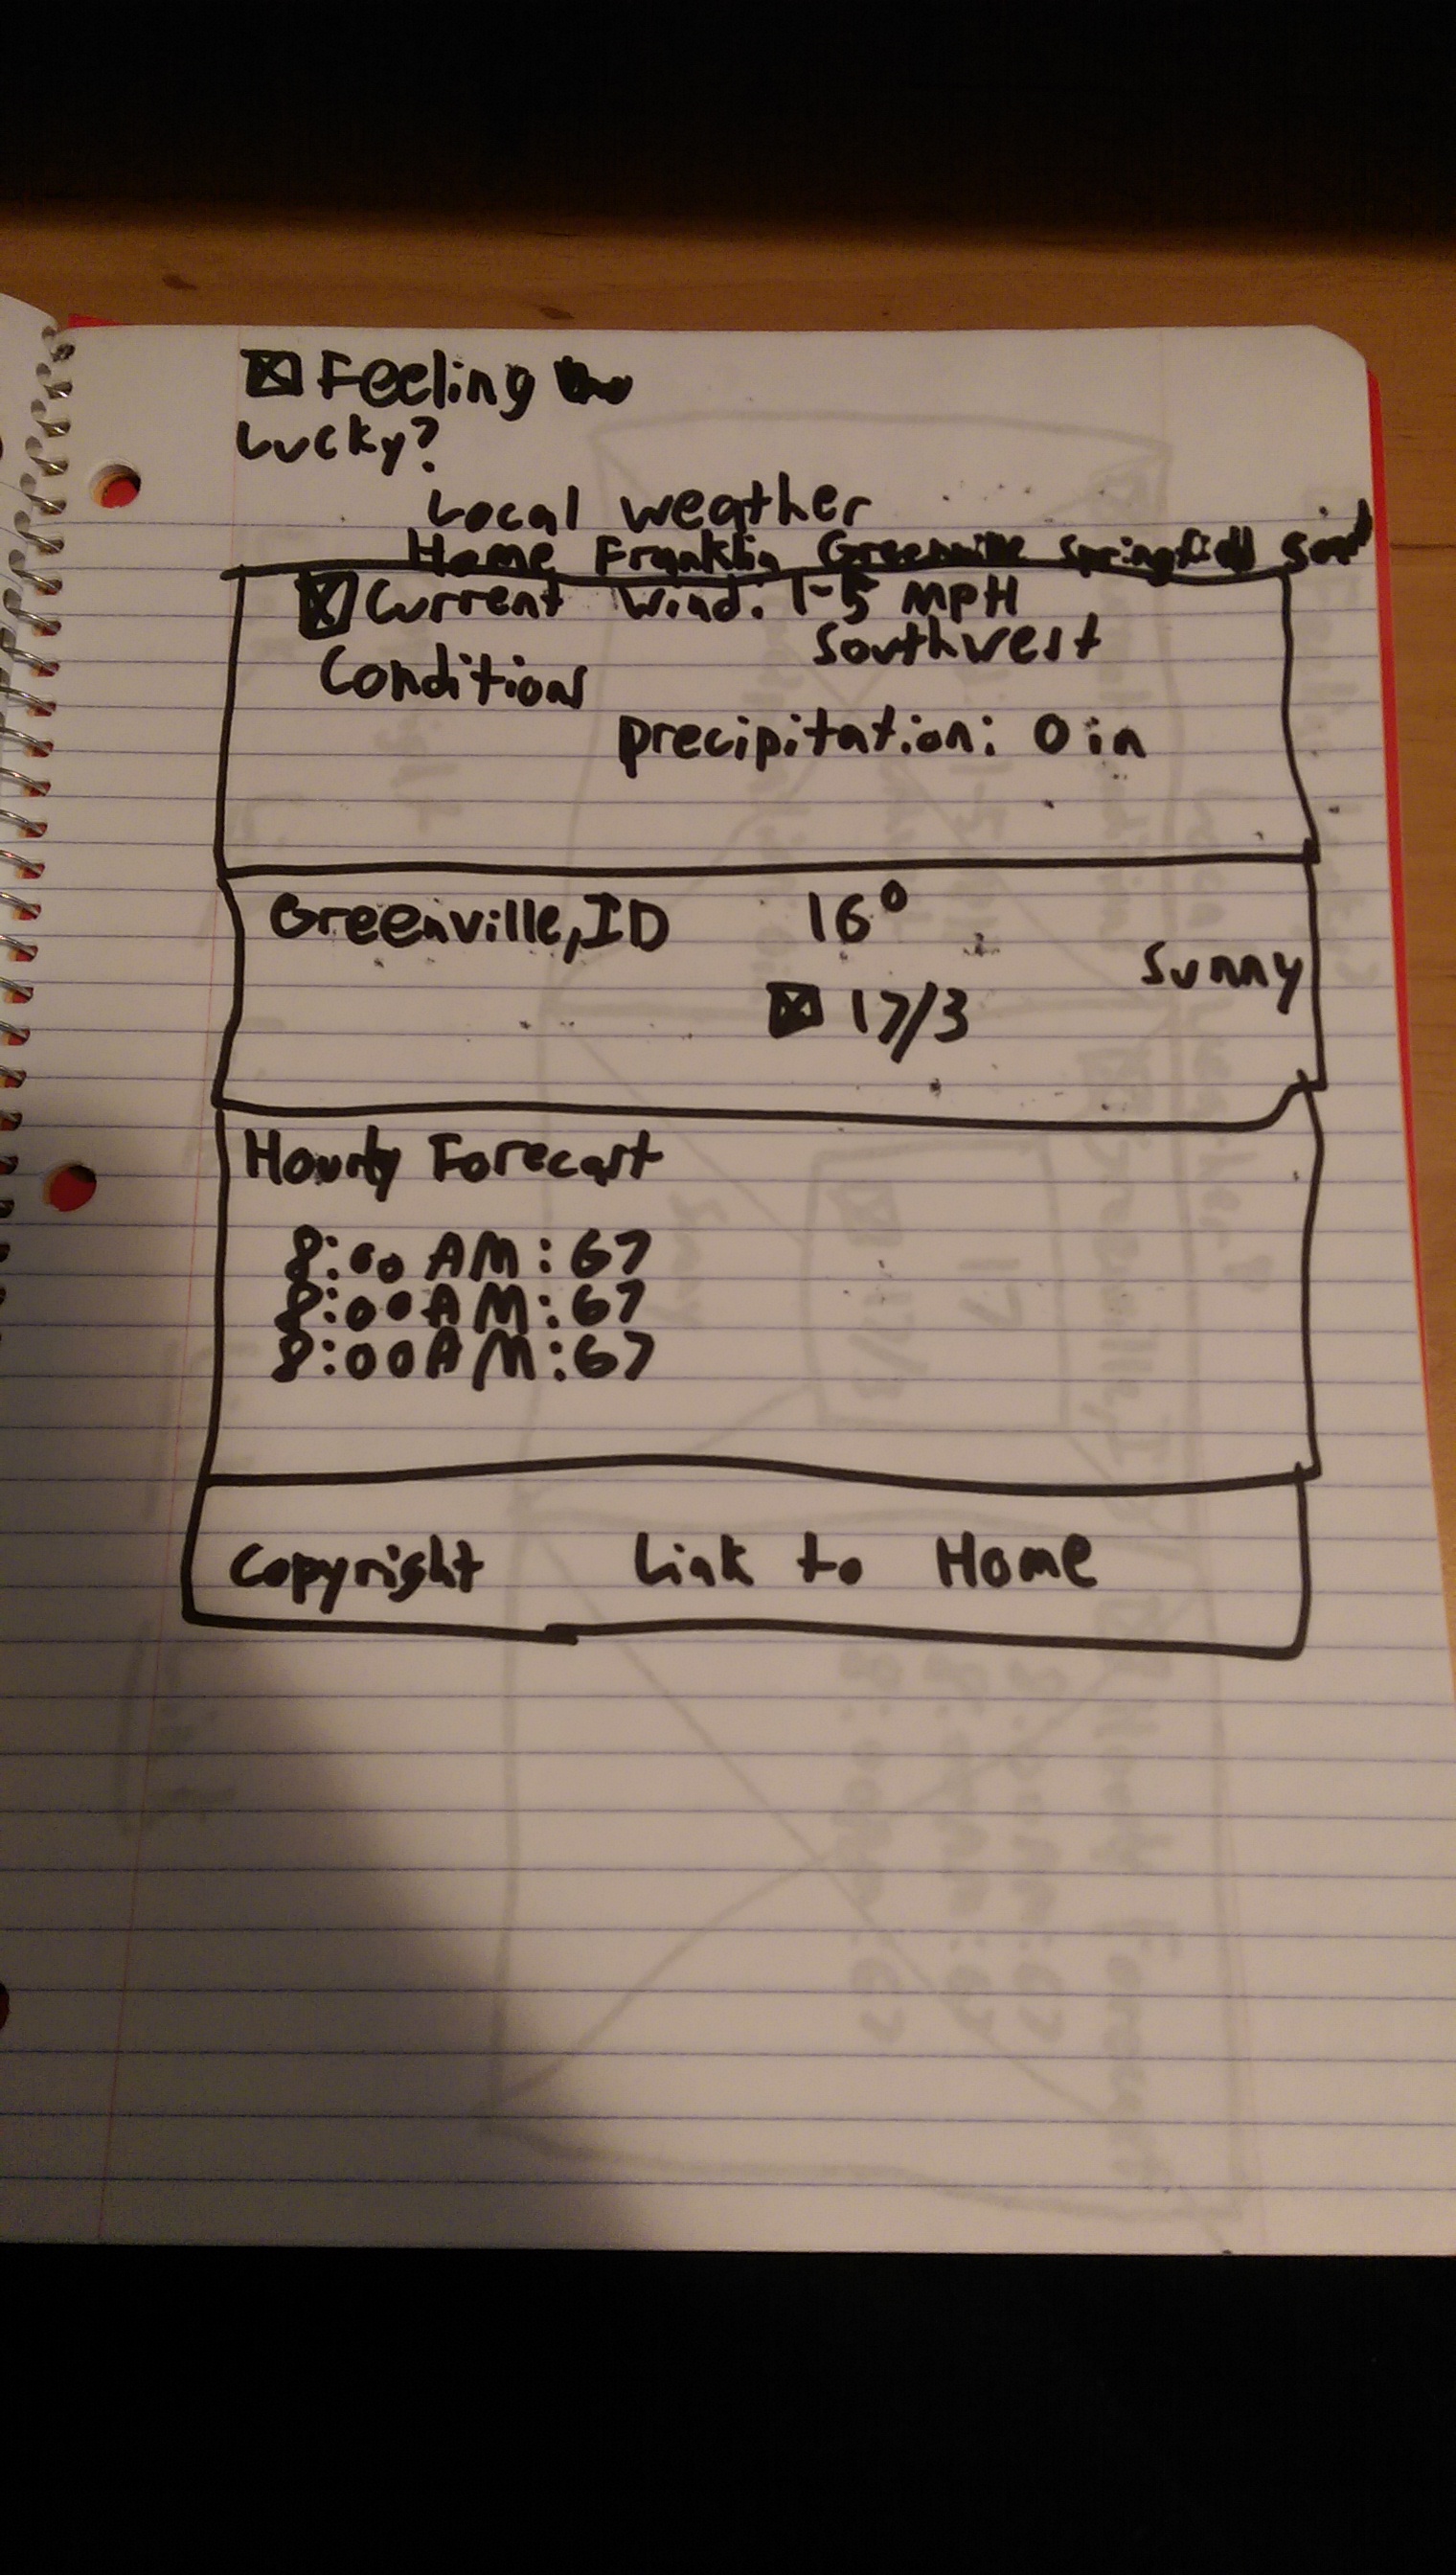 Feeling
Lucky?
Local weather
Home Franklin Greenville Springfield
Current Wind: 1-5 MPH
Southwest
Conditions
precipitation: 0 in
Greenville, ID 16°
Sunny
17/3
Hourly Forecast
8:00 AM: 67
8:00 AM: 67
8:00 AM: 67
Copyright Link to Home